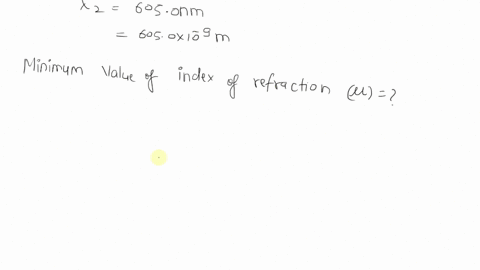 λ2 = 605.0nm
= 605.0x10⁻⁹m
Minimum Value of index of refraction (μ) = ?